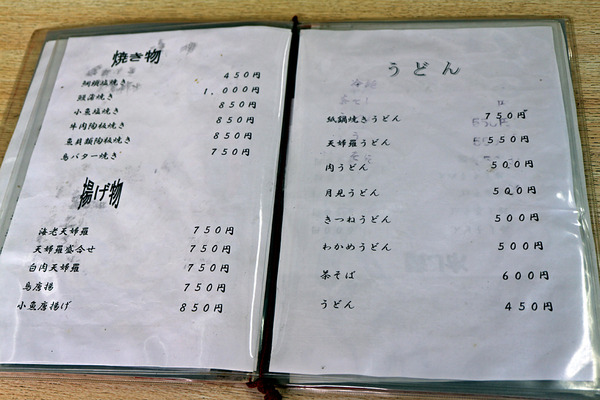 焼き物
塩焼き 450円
鰻蒲焼き 1,000円
小魚塩焼き 850円
牛肉陶板焼き 850円
魚貝類陶板焼き 850円
鳥バター焼き 750円
揚げ物
海老天婦羅 750円
天婦羅盛合せ 750円
白肉天婦羅 750円
鳥唐揚 750円
小魚唐揚げ 850円
うどん
紙鍋焼きうどん 750円
天婦羅うどん 550円
肉うどん 500円
月見うどん 500円
きつねうどん 500円
わかめうどん 500円
茶そば 600円
うどん 450円